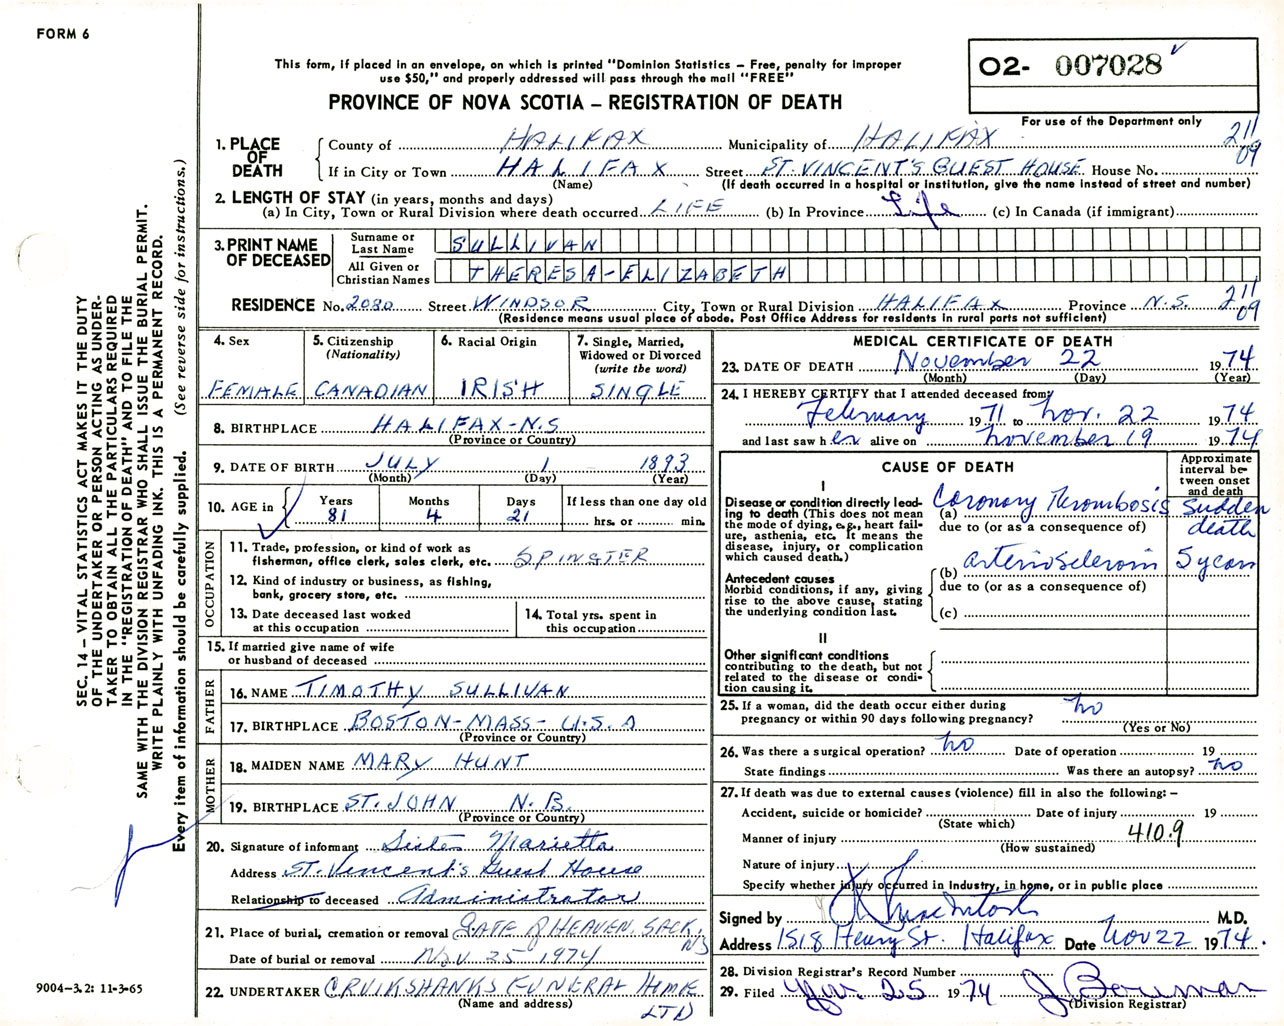 FORM 6
This form, if placed in an envelope, on which is printed "Dominion Statistics – Free, penalty for improper
use $50," and properly addressed will pass through the mail "FREE"
PROVINCE OF NOVA SCOTIA – REGISTRATION OF DEATH
O2- 007028
For use of the Department only
211
09
1. PLACE OF DEATH
County of HALIFAX Municipality of HALIFAX
If in City or Town HALIFAX Street ST. VINCENT'S GUEST HOUSE House No.
(Name) (If death occurred in a hospital or institution, give the name instead of street and number)
2. LENGTH OF STAY (in years, months and days)
(a) In City, Town or Rural Division where death occurred LIFE (b) In Province Life (c) In Canada (if immigrant)
3. PRINT NAME OF DECEASED
Surname or Last Name SULLIVAN
All Given or Christian Names THERESA-ELIZABETH
RESIDENCE No. 2080 Street WINDSOR City, Town or Rural Division HALIFAX Province N.S. 211
09
(Residence means usual place of abode. Post Office Address for residents in rural parts not sufficient)
4. Sex
FEMALE
5. Citizenship
(Nationality)
CANADIAN
6. Racial Origin
IRISH
7. Single, Married,
Widowed or Divorced
(write the word)
SINGLE
8. BIRTHPLACE HALIFAX-N.S
(Province or Country)
9. DATE OF BIRTH JULY 1 1893
(Month) (Day) (Year)
10. AGE in
Years Months Days If less than one day old
81 4 21 hrs. or min.
OCCUPATION
11. Trade, profession, or kind of work as
fisherman, office clerk, sales clerk, etc. SPINSTER
12. Kind of industry or business, as fishing,
bank, grocery store, etc.
13. Date deceased last worked
at this occupation
14. Total yrs. spent in
this occupation
15. If married give name of wife
or husband of deceased
FATHER
16. NAME TIMOTHY SULLIVAN
17. BIRTHPLACE BOSTON-MASS-U.S.A
(Province or Country)
MOTHER
18. MAIDEN NAME MARY HUNT
19. BIRTHPLACE ST. JOHN N.B.
(Province or Country)
20. Signature of informant Sister Marietta
Address St. Vincent's Guest House
Relationship to deceased Administrator
21. Place of burial, cremation or removal GATE OF HEAVEN, SACK, NS
Date of burial or removal Nov. 25 - 1974
22. UNDERTAKER CRUIKSHANKS FUNERAL HOME
(Name and address) LTD
MEDICAL CERTIFICATE OF DEATH
23. DATE OF DEATH November 22 1974
(Month) (Day) (Year)
24. I HEREBY CERTIFY that I attended deceased from
February 1971 to Nov. 22 1974
and last saw her alive on November 19 1974
CAUSE OF DEATH
Approximate
interval be-
tween onset
and death
I
Disease or condition directly lead-
ing to death (This does not mean
the mode of dying, e.g., heart fail-
ure, asthenia, etc. It means the
disease, injury, or complication
which caused death.)
(a) Coronary Thrombosis Sudden death
due to (or as a consequence of)
Antecedent causes
Morbid conditions, if any, giving
rise to the above cause, stating
the underlying condition last.
(b) arteriosclerosis 5 years
due to (or as a consequence of)
(c)
II
Other significant conditions
contributing to the death, but not
related to the disease or condi-
tion causing it.
25. If a woman, did the death occur either during
pregnancy or within 90 days following pregnancy? no
(Yes or No)
26. Was there a surgical operation? no Date of operation 19
State findings Was there an autopsy? no
27. If death was due to external causes (violence) fill in also the following: –
Accident, suicide or homicide? Date of injury 19
(State which)
Manner of injury 410.9
(How sustained)
Nature of injury
Specify whether injury occurred in industry, in home, or in public place
Signed by MacIntosh M.D.
Address 1518 Henry St. Halifax Date Nov 22 1974.
28. Division Registrar's Record Number
29. Filed Nov. 25 1974 J Bowman
(Division Registrar)
SEC. 14 – VITAL STATISTICS ACT MAKES IT THE DUTY
OF THE UNDERTAKER OR PERSON ACTING AS UNDER-
TAKER TO OBTAIN ALL THE PARTICULARS REQUIRED
IN THE "REGISTRATION OF DEATH" AND TO FILE THE
SAME WITH THE DIVISION REGISTRAR WHO SHALL ISSUE THE BURIAL PERMIT.
WRITE PLAINLY WITH UNFADING INK. THIS IS A PERMANENT RECORD.
Every item of information should be carefully supplied. (See reverse side for instructions.)
9004-3.2: 11-3-65